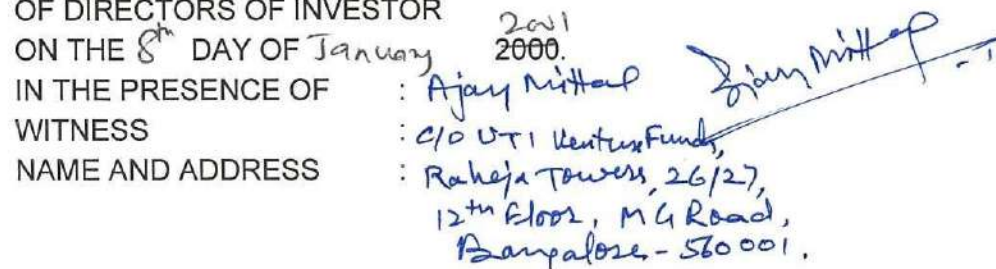 OF DIRECTORS OF INVESTOR
2001
ON THE 8th DAY OF January 2000.
IN THE PRESENCE OF : Ajay Mittal Ajay Mittal
WITNESS : C/O UTI Venture Funds,
NAME AND ADDRESS : Raheja Towers, 26/27,
12th Floor, MG Road,
Bangalore - 560001.